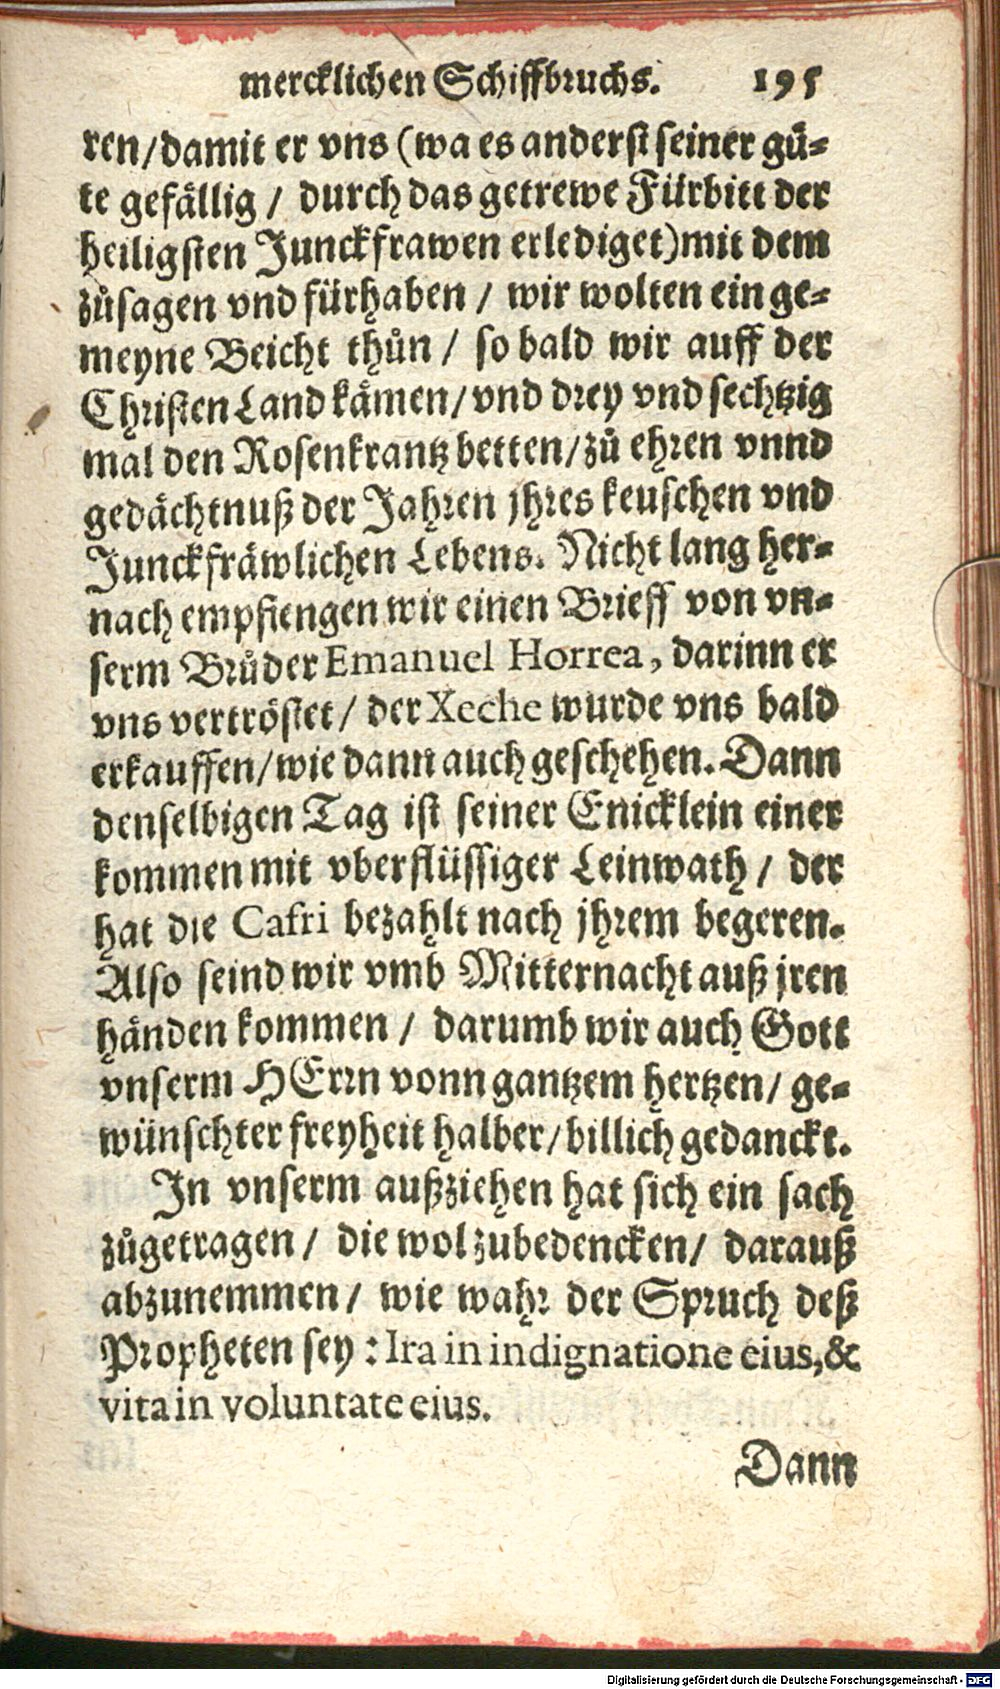 mercklichen Schiffbruchs. 195
ren/damit er vns (wa es anderst seiner gü-
te gefällig / durch das getrewe Fürbitt der
heiligsten Junckfrawen erlediget)mit dem
zůsagen vnd fürhaben / wir wolten ein ge-
meyne Beicht thůn / so bald wir auff der
Christen Land kämen/vnd drey vnd sechtzig
mal den Rosenkrantz betten/zů ehren vnnd
gedächtnuß der Jahren jhres keuschen vnd
Junckfräwlichen Lebens. Nicht lang her-
nach empfiengen wir einen Brieff von vn-
serm Brůder Emanuel Horrea, darinn er
vns vertröstet/ der Xeche wurde vns bald
erkauffen/wie dann auch geschehen. Dann
denselbigen Tag ist seiner Enicklein einer
kommen mit vberflüssiger Leinwath / der
hat die Cafri bezahlt nach jhrem begeren.
Also seind wir vmb Mitternacht auß jren
händen kommen / darumb wir auch Gott
vnserm HErrn vonn gantzem hertzen/ ge-
wünschter freyheit halber/billich gedanckt.
In vnserm außziehen hat sich ein sach
zůgetragen/ die wol zubedencken/ darauß
abzunemmen/ wie wahr der Spruch deß
Propheten sey : Ira in indignatione eius,&
vita in voluntate eius.
Dann
Digitalisierung gefördert durch die Deutsche Forschungsgemeinschaft - DFG